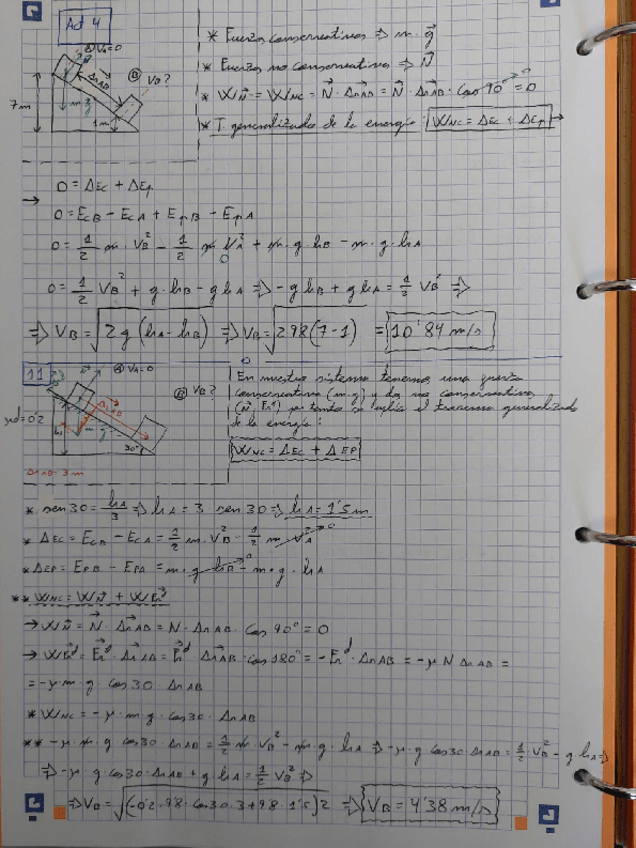 Act 4
Ⓐ VA=0
ΔrAB
Ⓑ VB?
7m
m·g
1m
* Fuerzas conservativas ⇒ m·g⃗
* Fuerzas no conservativas ⇒ N⃗
* WN⃗ = WNC = N⃗ · Δr⃗AB = N⃗ · Δr⃗AB · cos 90° = 0
* T. generalizado de la energía: WNC = ΔEc + ΔEp →
→ 0 = ΔEc + ΔEp
0 = EcB - EcA + EpB - EpA
0 = 1/2 m · VB² - 1/2 m VA² + m · g · hB - m · g · hA
0
0 = 1/2 VB² + g · hB - g hA ⇒ -g hB + g hA = 1/2 VB² ⇒
⇒ VB = √2g (hA - hB) ⇒ VB = √2 9'8 (7-1) = 10'84 m/s
11
Ⓐ VA=0
Ⓑ VB?
μd=0'2
ΔrAB
m·g
30°
ΔrAB=3m
En nuestro sistema tenemos una fuerza
conservativa (m·g) y dos no conservativas
(N⃗, Frᵈ) por tanto se aplica el teorema generalizado
de la energía:
WNC = ΔEc + ΔEP
* sen 30 = hA/3 ⇒ hA = 3 sen 30 ⇒ hA = 1'5m
* ΔEc = EcB - EcA = 1/2 m · VB² - 1/2 m · VA² 0
* ΔEP = EPB - EPA = m · g · hB 0 - m · g · hA
** WNC = WN⃗ + WFrᵈ
→ WN⃗ = N⃗ · Δr⃗AB = N · ΔrAB · cos 90° = 0
→ WFrᵈ = Frᵈ · Δr⃗AB = Frᵈ · ΔrAB · cos 180° = -Frᵈ · ΔrAB = -μ N ΔrAB =
= -μ · m · g · cos 30 · ΔrAB
* WNC = -μ · m · g · cos 30 · ΔrAB
** -μ · m · g cos 30 · ΔrAB = 1/2 m · VB² - m · g · hA ⇒ -μ · g · cos 30 · ΔrAB = 1/2 · VB² - g hA ⇒
⇒ -μ · g cos 30 · ΔrAB + g hA = 1/2 VB² ⇒
⇒ VB = √(-0'2 · 9'8 · cos 30 · 3 + 9'8 · 1'5) 2 ⇒ VB = 4'38 m/s